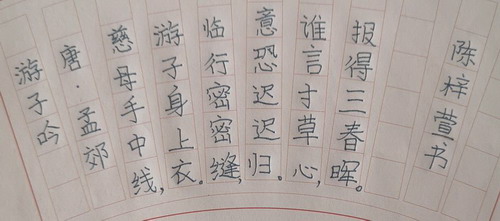 游子吟
唐·孟郊
慈母手中线,
游子身上衣。
临行密密缝,
意恐迟迟归。
谁言寸草心,
报得三春晖。
陈梓萱书